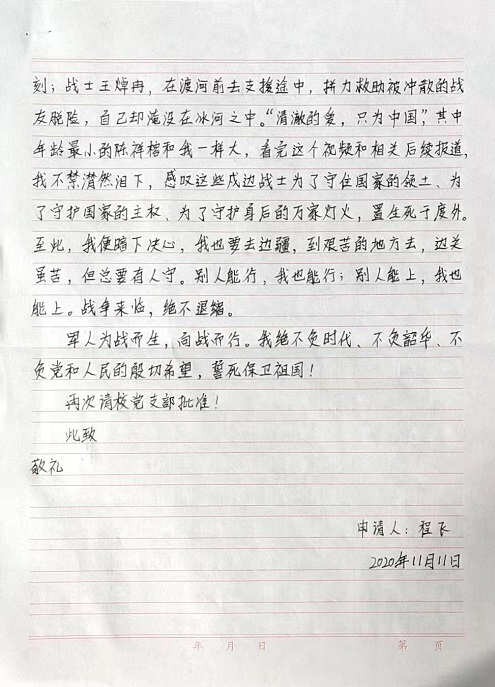 刻；战士王焯冉，在渡河前去支援途中，拼力救助被冲散的战
友脱险，自己却淹没在冰河之中。“清澈的爱，只为中国”，其中
年龄最小的陈祥榕和我一样大，看完这个视频和相关后续报道，
我不禁潸然泪下，感叹这些戍边战士为了守住国家的领土、为
了守护国家的主权、为了守护身后的万家灯火，置生死于度外。
至此，我便暗下决心，我也要去边疆，到艰苦的地方去，边关
虽苦，但总要有人守。别人能行，我也能行；别人能上，我也
能上。战争来临，绝不退缩。
军人为战而生，向战而行。我绝不负时代、不负韶华、不
负党和人民的殷切希望，誓死保卫祖国！
再次请校党支部批准！
此致
敬礼
申请人：程飞
2020年11月11日
年 月 日 第 页